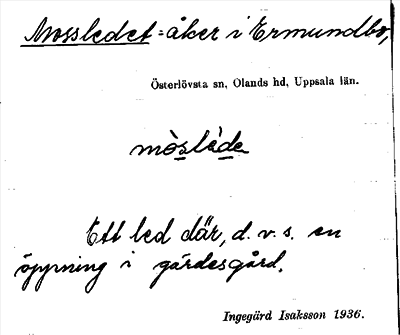 Mossledet = åker i Ermundbo,
Österlövsta sn, Olands hd, Uppsala län.
mòsléde
Ett led där, d.v.s. en
öppning i gärdesgård.
Ingegärd Isaksson 1936.